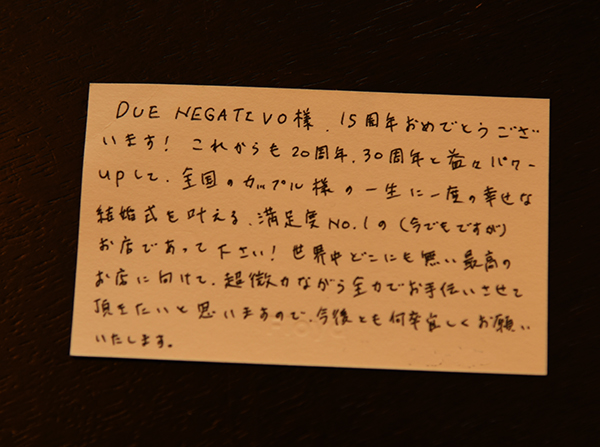 DUE NEGATIVO様、15周年おめでとうござ
います！これからも20周年、30周年と益々パワー
upして、全国のカップル様の一生に一度の幸せな
結婚式を叶える、満足度No.1の(今でもですが)
お店であって下さい！世界中どこにも無い最高の
お店に向けて、超微力ながら全力でお手伝いさせて
頂きたいと思いますので、今後とも何卒宜しくお願い
いたします。